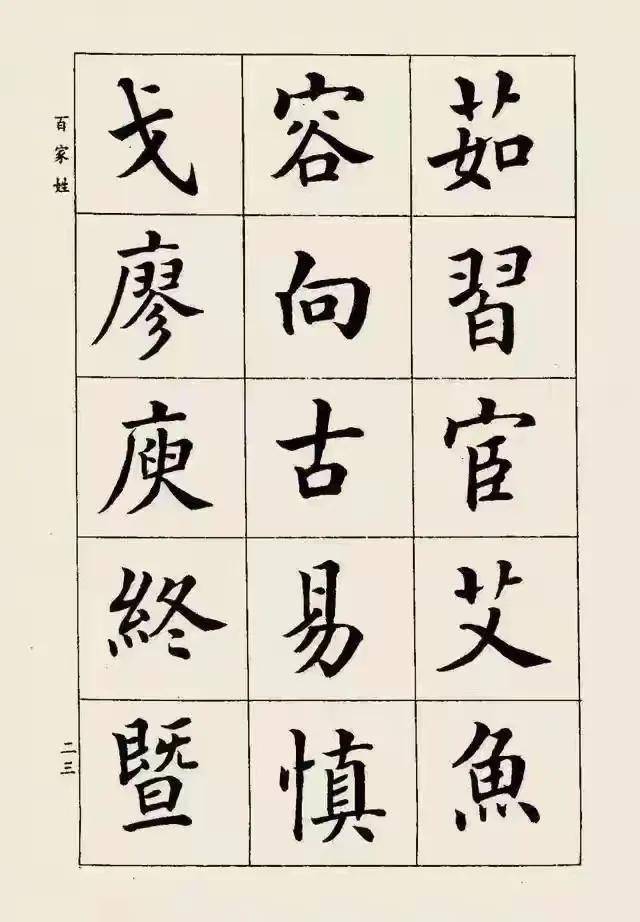 茹習宦艾魚
容向古易慎
戈廖庾終暨
百家姓
二三